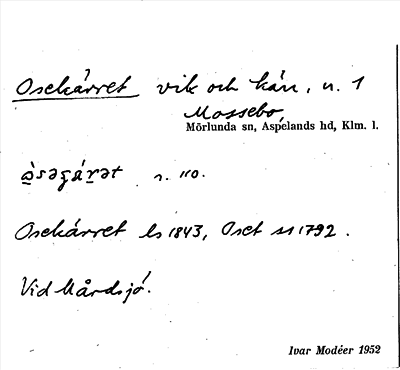 Osekärret vik och kärr, n. 1
Mossebo,
Mörlunda sn, Aspelands hd, Klm. l.
n. 110.
Osekärret ls 1843, Oset ss 1792.
Vid Mårdsjö.
Ivar Modéer 1952